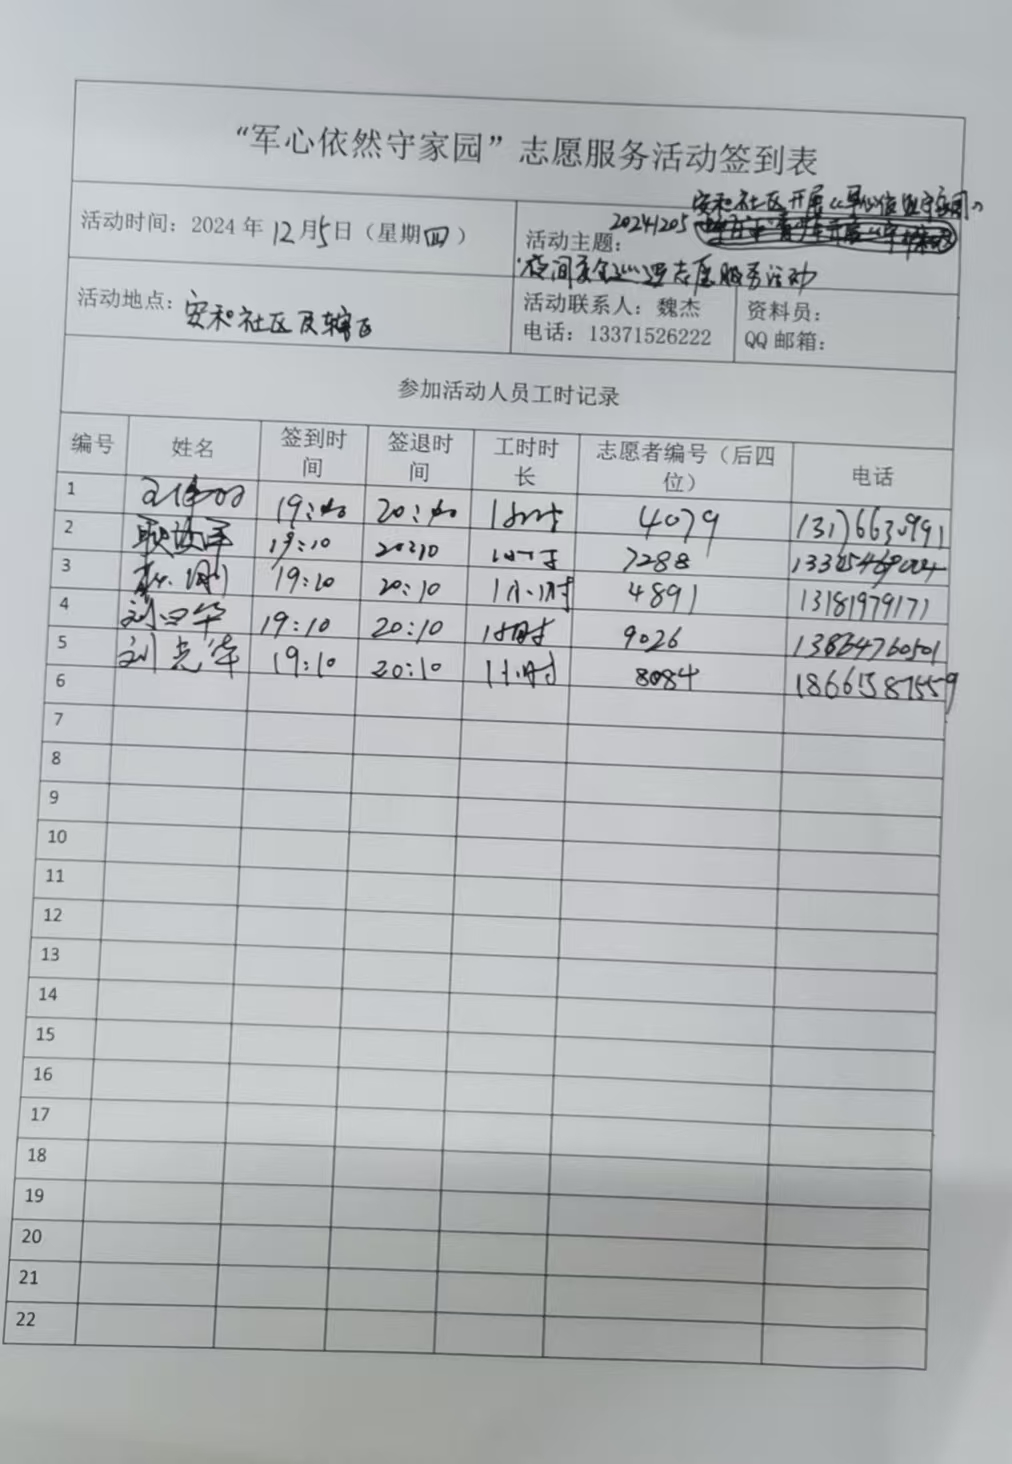 “军心依然守家园”志愿服务活动签到表
活动时间：2024年12月5日（星期四）
活动主题：20241205安和社区开展“军心依然守家园”
夜间安全巡逻志愿服务活动
活动地点：安和社区及辖区
活动联系人：魏杰
电话：13371526222
资料员：
QQ邮箱：
参加活动人员工时记录
编号 姓名 签到时间 签退时间 工时时长 志愿者编号（后四位） 电话
1 4079
2 19:10 20:10 7288
3 19:10 20:10 1小时 4891 13181979171
4 19:10 20:10 1小时 9026 13864760501
5 刘光华 19:10 20:10 1小时 8084 18661587559
6
7
8
9
10
11
12
13
14
15
16
17
18
19
20
21
22